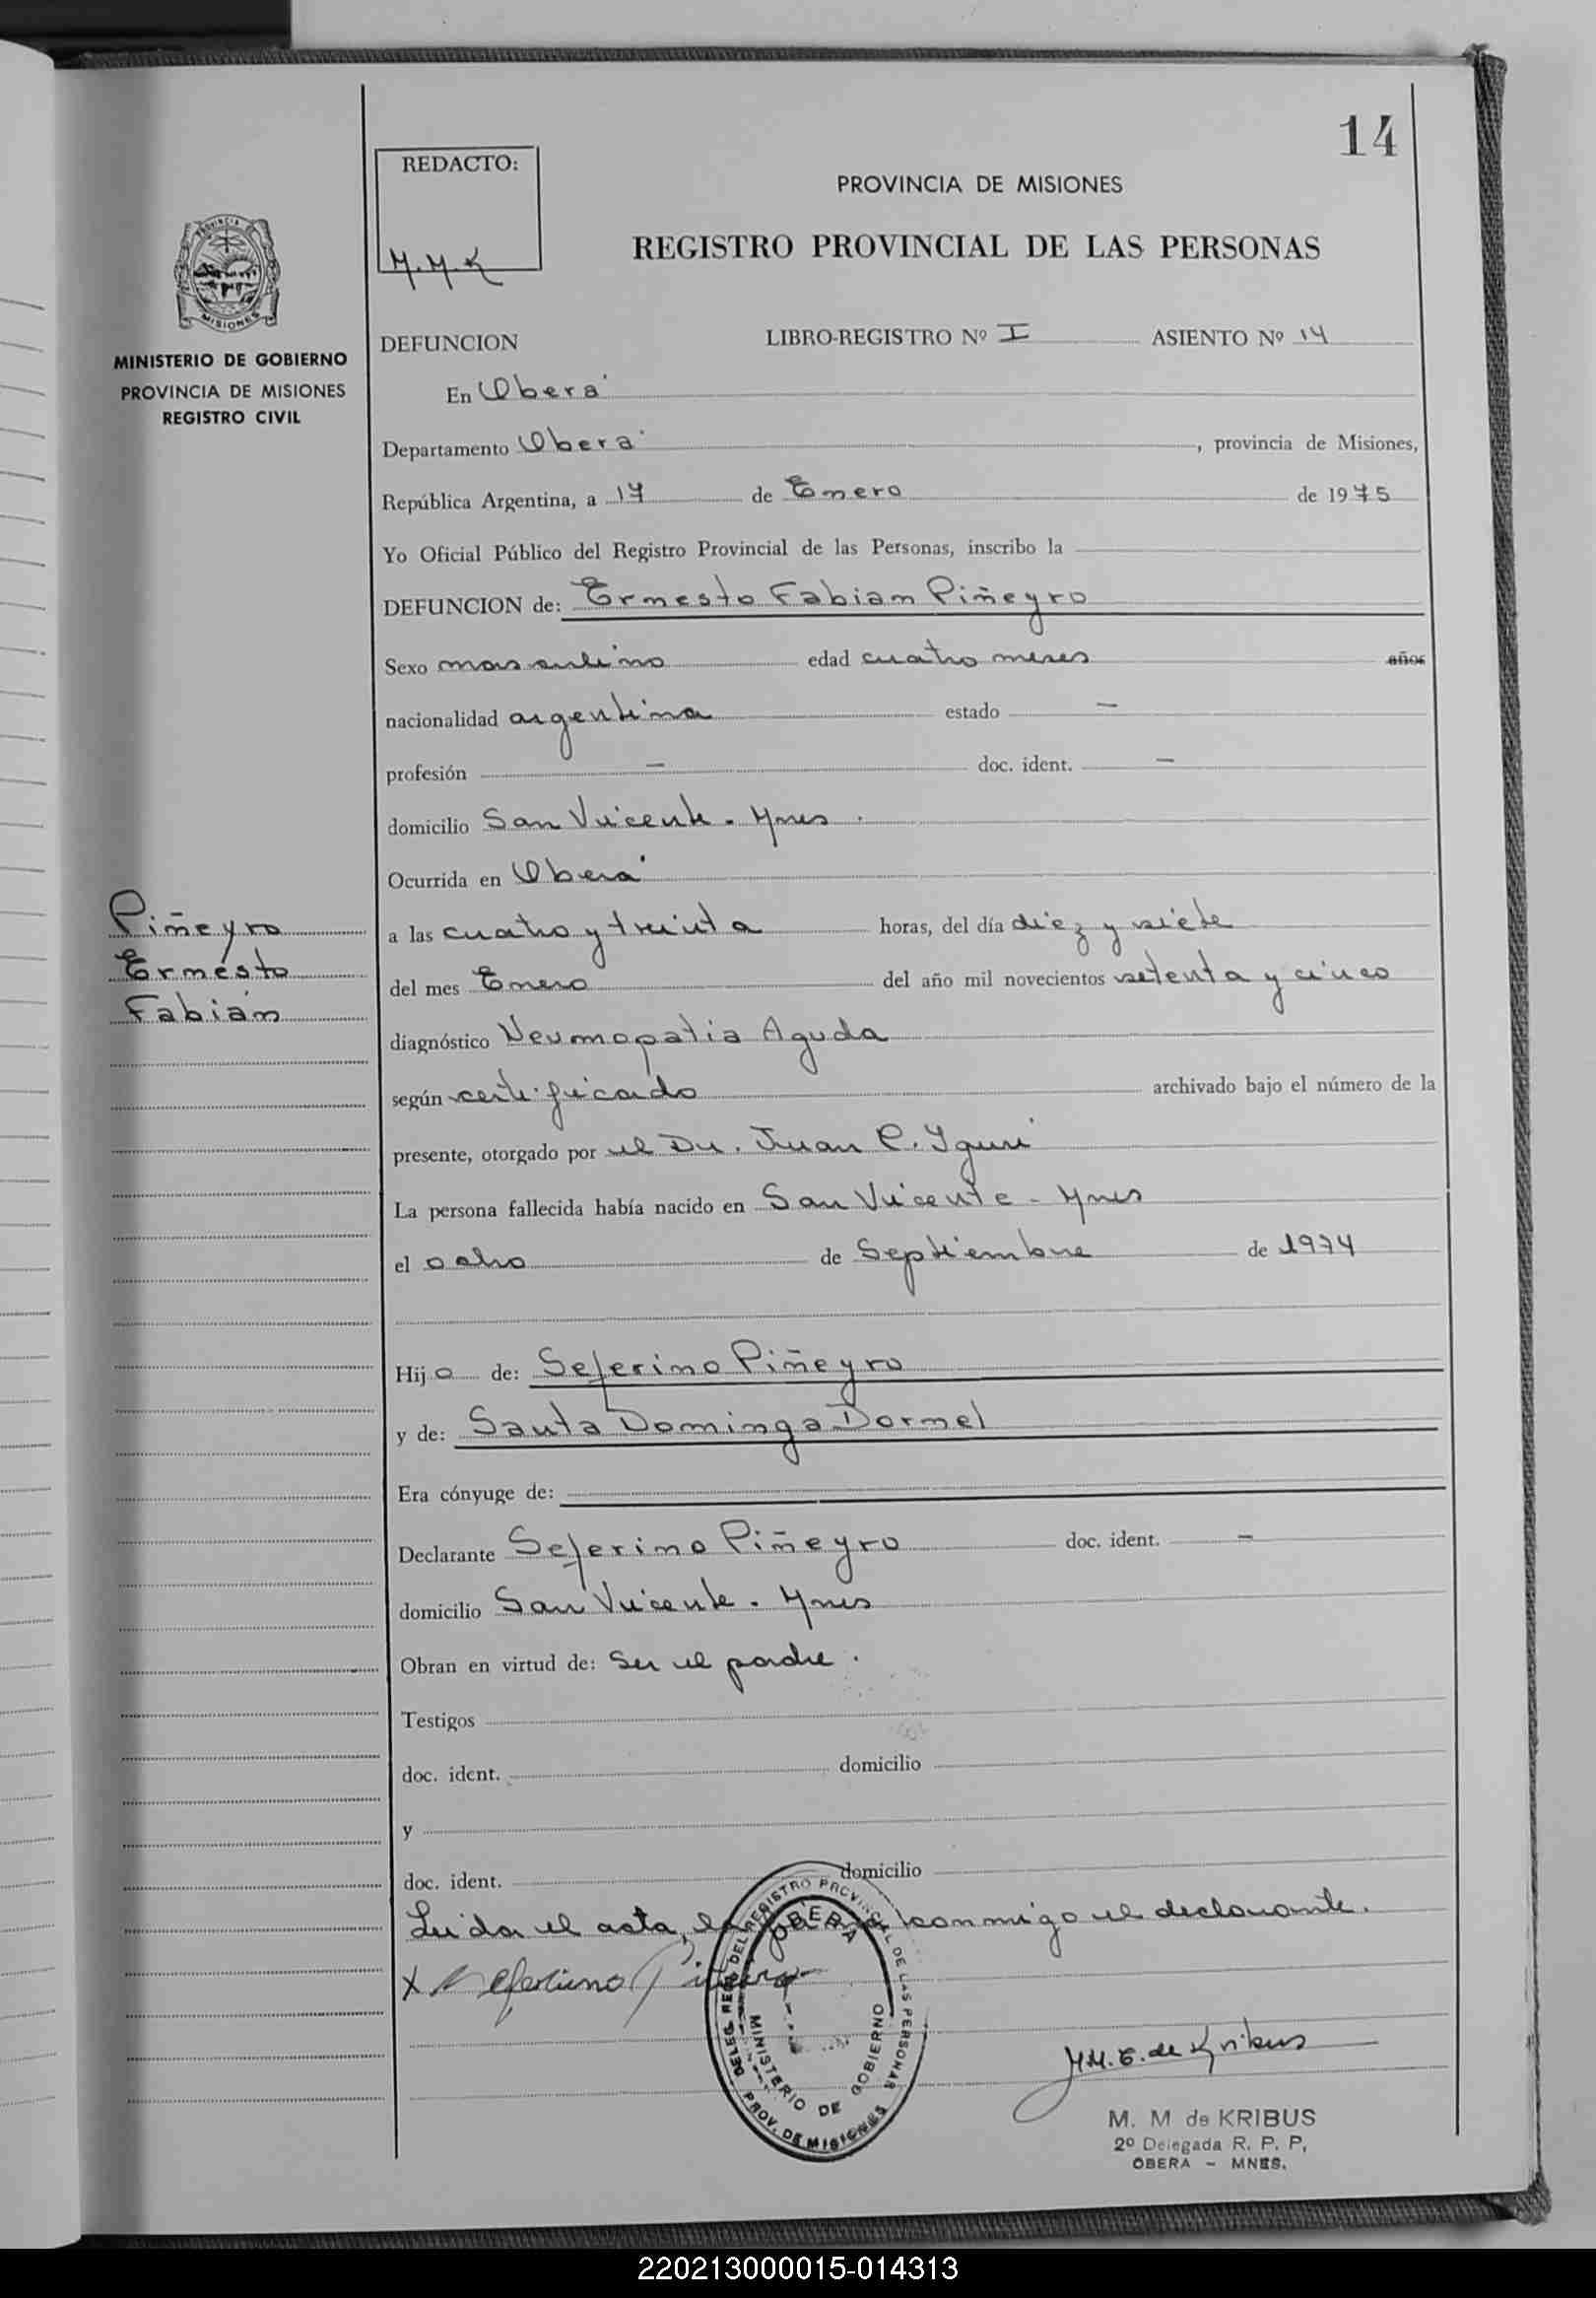 14
REDACTO:
M.M.K
PROVINCIA DE MISIONES
REGISTRO PROVINCIAL DE LAS PERSONAS
PROVINCIA
MISIONES
MINISTERIO DE GOBIERNO
PROVINCIA DE MISIONES
REGISTRO CIVIL
DEFUNCION LIBRO-REGISTRO Nº I ASIENTO Nº 14
En Oberá
Departamento Oberá, provincia de Misiones,
República Argentina, a 17 de Enero de 1975
Yo Oficial Público del Registro Provincial de las Personas, inscribo la
DEFUNCION de: Ernesto Fabian Piñeyro
Sexo masculino edad cuatro meses años
nacionalidad argentina estado —
profesión — doc. ident. —
domicilio San Vicente - Mnes.
Ocurrida en Oberá
Piñeyro
Ernesto
Fabián
a las cuatro y treinta horas, del día diez y siete
del mes Enero del año mil novecientos setenta y cinco
diagnóstico Neumopatia Aguda
según certificado archivado bajo el número de la
presente, otorgado por el Dr. Juan C.
La persona fallecida había nacido en San Vicente - Mnes
el ocho de Septiembre de 1974
Hijo de: Seferino Piñeyro
y de: Santa Dominga Dornel
Era cónyuge de:
Declarante Seferino Piñeyro doc. ident. —
domicilio San Vicente - Mnes
Obran en virtud de: Ser el padre.
Testigos
doc. ident. domicilio
y
doc. ident. domicilio
Leida el acta, la firma conmigo el declarante.
X Seferino Piñeyro
DELEG. REG. DEL REGISTRO PROVINCIAL DE LAS PERSONAS
OBERA
MINISTERIO DE GOBIERNO
PROV. DE MISIONES
M.M. E. de Kribus
M. M de KRIBUS
2º Delegada R. P. P,
OBERA - MNES.
220213000015-014313